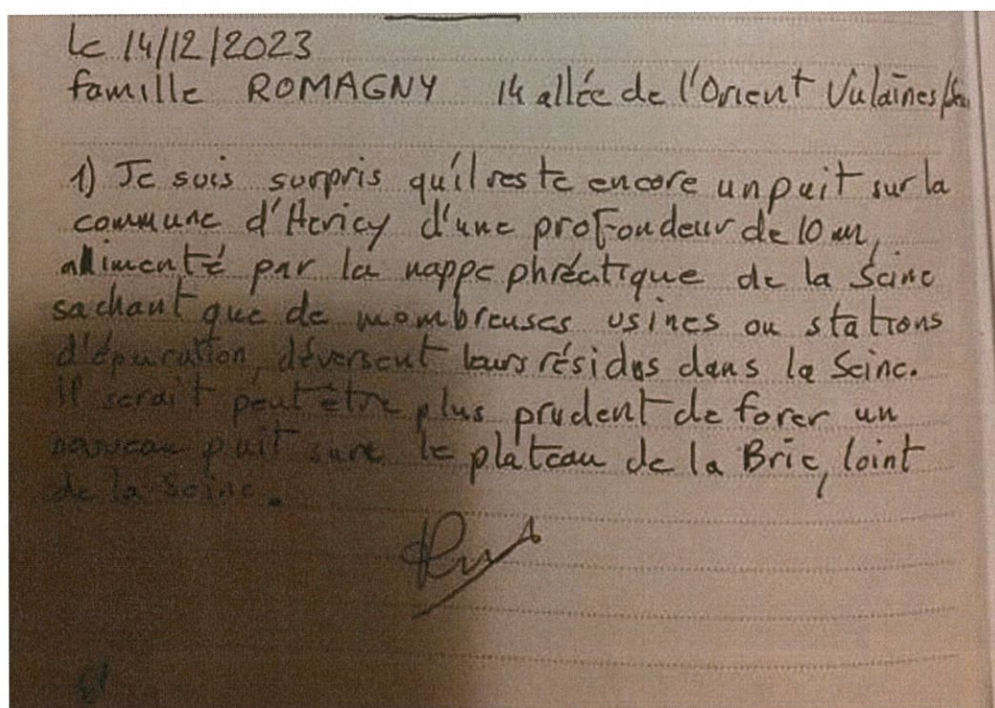 le 14/12/2023
famille ROMAGNY 14 allée de l'Orient Vulaines/Sei
1) Je suis surpris qu'il reste encore un puit sur la
commune d'Hericy d'une profondeur de 10 m,
alimenté par la nappe phréatique de la Seine
sachant que de nombreuses usines ou stations
d'épuration, déversent leurs résidus dans la Seine.
il serait peut être plus prudent de forer un
nouveau puit sure le plateau de la Brie, loint
de la Seine.